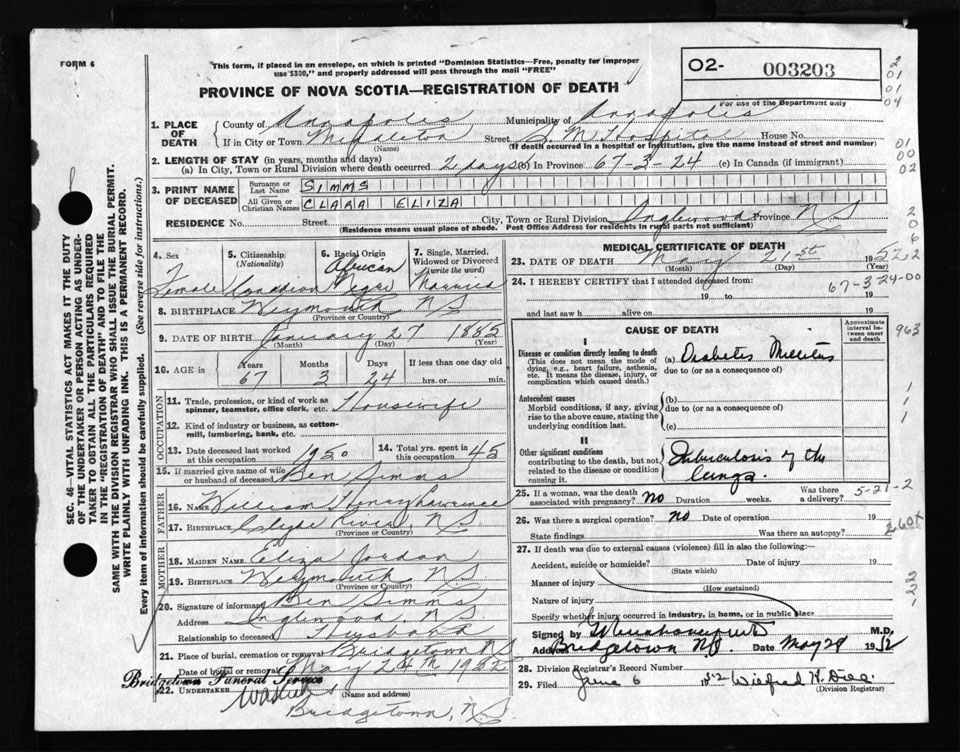 FORM 6
This form, if placed in an envelope, on which is printed "Dominion Statistics—Free, penalty for improper
use $300," and properly addressed will pass through the mail "FREE"
O2- 003203
For use of the Department only
PROVINCE OF NOVA SCOTIA—REGISTRATION OF DEATH
1. PLACE OF DEATH
County of Annapolis Municipality of Annapolis
If in City or Town Middleton Street S. M. Hospital House No.
(Name) (If death occurred in a hospital or institution, give the name instead of street and number)
2. LENGTH OF STAY (in years, months and days)
(a) In City, Town or Rural Division where death occurred 2 days (b) In Province 67-3-24 (c) In Canada (if immigrant)
3. PRINT NAME OF DECEASED
Surname or Last Name SIMMS
All Given or Christian Names CLARA ELIZA
RESIDENCE No. Street City, Town or Rural Division Inglewood Province N S
(Residence means usual place of abode. Post Office Address for residents in rural parts not sufficient)
4. Sex Female
5. Citizenship: (Nationality) Canadian
6. Racial Origin African Negro
7. Single, Married, Widowed or Divorced (write the word) Married
8. BIRTHPLACE Weymouth N S
(Province or Country)
9. DATE OF BIRTH January 27 1885
(Month) (Day) (Year)
10. AGE in Years 67 Months 3 Days 24 If less than one day old
hrs. or min.
OCCUPATION
11. Trade, profession, or kind of work as spinner, teamster, office clerk, etc. Housewife
12. Kind of industry or business, as cotton-mill, lumbering, bank, etc.
13. Date deceased last worked at this occupation 1950
14. Total yrs. spent in this occupation 45
15. If married give name of wife or husband of deceased Ben Simms
FATHER
16. Name William Henry Lawrence
17. Birthplace Clyde River, N S
(Province or Country)
MOTHER
18. Maiden Name Eliza Jordan
19. Birthplace Weymouth N S
(Province or Country)
20. Signature of informant Ben Simms
Address Inglewood, N S
Relationship to deceased Husband
21. Place of burial, cremation or removal Bridgetown N S
Date of burial or removal May 24th 1952
Bridgetown Funeral Service
22. Undertaker
(Name and address)
Bridgetown, N S
MEDICAL CERTIFICATE OF DEATH
23. DATE OF DEATH May 21st 1952
(Month) (Day) (Year)
24. I HEREBY CERTIFY that I attended deceased from:
67-3-24-00
19 to 19
and last saw h alive on 19
CAUSE OF DEATH
Approximate interval between onset and death
I
Disease or condition directly leading to death
(This does not mean the mode of dying, e.g., heart failure, asthenia, etc. It means the disease, injury, or complication which caused death.)
(a) Diabetes Mellitus
due to (or as a consequence of)
Antecedent causes
Morbid conditions, if any, giving rise to the above cause, stating the underlying condition last.
(b)
due to (or as a consequence of)
(c)
II
Other significant conditions
contributing to the death, but not related to the disease or condition causing it
Tuberculosis of the lungs
25. If a woman, was the death associated with pregnancy? No Duration weeks. Was there a delivery? 5-21-2
26. Was there a surgical operation? No Date of operation 19
State findings Was there an autopsy?
27. If death was due to external causes (violence) fill in also the following:—
Accident, suicide or homicide? Date of injury 19
(State which)
Manner of injury
(How sustained)
Nature of injury
Specify whether injury occurred in industry, in home, or in public place
Signed by M.D.
Bridgetown NS. Date May 28 1952
28. Division Registrar's Record Number
29. Filed June 6 1952
(Division Registrar)
963
SEC. 46—VITAL STATISTICS ACT MAKES IT THE DUTY
OF THE UNDERTAKER OR PERSON ACTING AS UNDER-
TAKER TO OBTAIN ALL THE PARTICULARS REQUIRED
IN THE "REGISTRATION OF DEATH" AND TO FILE THE
SAME WITH THE DIVISION REGISTRAR WHO SHALL ISSUE THE BURIAL PERMIT.
WRITE PLAINLY WITH UNFADING INK. THIS IS A PERMANENT RECORD.
Every item of information should be carefully supplied. (See reverse side for instructions.)